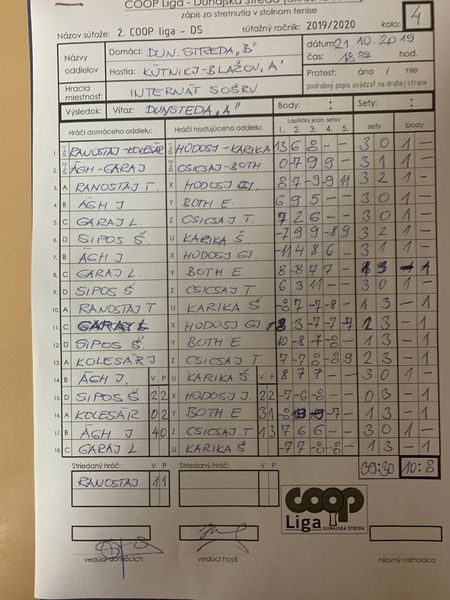 COOP Liga - Dunajská Streda
zápis zo stretnutia v stolnom tenise
Názov súťaže: 2. COOP liga - DS súťažný ročník: 2019/2020 kolo: 4
Názvy oddielov Domáci: DUN. STREDA „B" dátum: 21.10.2019
Hostia: KÚTNICJ-BLAŽOV „A" čas:
Hracia miestnosť: INTERNÁT SOŠRU Protest: áno / nie
podrobný popis uvádzať na druhej strane
Výsledok: Víťaz: DUNSTEDA „A" Body: : Sety: :
Hráči domáceho oddielu: Hráči hosťujúceho oddielu: Loptičky jedn. setov sety body
1. 2. 3. 4. 5.
1. RANOSTAJ-KOLESÁR HODOSJ-KARIKA 13 6 8 3 0 1 -
2. ÁGH-GARAJ CSICSAJ-BOTH 0 7 9 9 3 1 1 -
3. A RANOSTAJ T. X HODOSJ GJ. 8 7 -9 -9 11 3 2 1 -
4. B ÁGH J Y BOTH E 6 9 5 3 0 1 -
5. C GARAJ L. Z CSICSAJ T. 7 2 6 3 0 1 -
6. D SIPOS Š. U KARIKA Š -7 9 9 -8 9 3 2 1 -
7. B ÁGH J X HODOSJ GJ. -11 4 8 6 3 1 1 -
8. C GARAJ L. Y BOTH E 8 -8 7 7 - 1
9. D SIPOS Š Z CSICSAJ T 6 3 11 3 0 1 -
10. A RANOSTAJ T U KARIKA Š -8 7 -7 -8 1 3 - 1
11. C GARAJ L X HODOSJ GJ 3 -7 -7 7 3 - 1
12. D SIPOS Š Y BOTH E 10 -8 -7 1 3 - 1
13. A KOLESÁR J Z CSICSAJ T 7 -7 -8 9 2 3 - 1
14. B ÁGH J. V P U KARIKA Š. V P 8 7 7 3 0 1 -
15. D SIPOS Š 2 2 X HODOSJ J. 2 2 -7 -6 -8 0 3 - 1
16. A KOLESÁR 0 2 Y BOTH E 3 1 -8 -7 1 3 - 1
17. B ÁGH J 4 0 Z CSICSAJ T 1 3 7 6 6 3 0 1 -
18. C GARAJ L U KARIKA Š -7 7 -8 1 3 - 1
Striedaný hráč: V P Striedaný hráč: V P 39:30 10:8
RANOSTAJ 1 1
coop
Liga DUNAJSKÁ STREDA
vedúci domácich vedúci hostí hlavný rozhodca